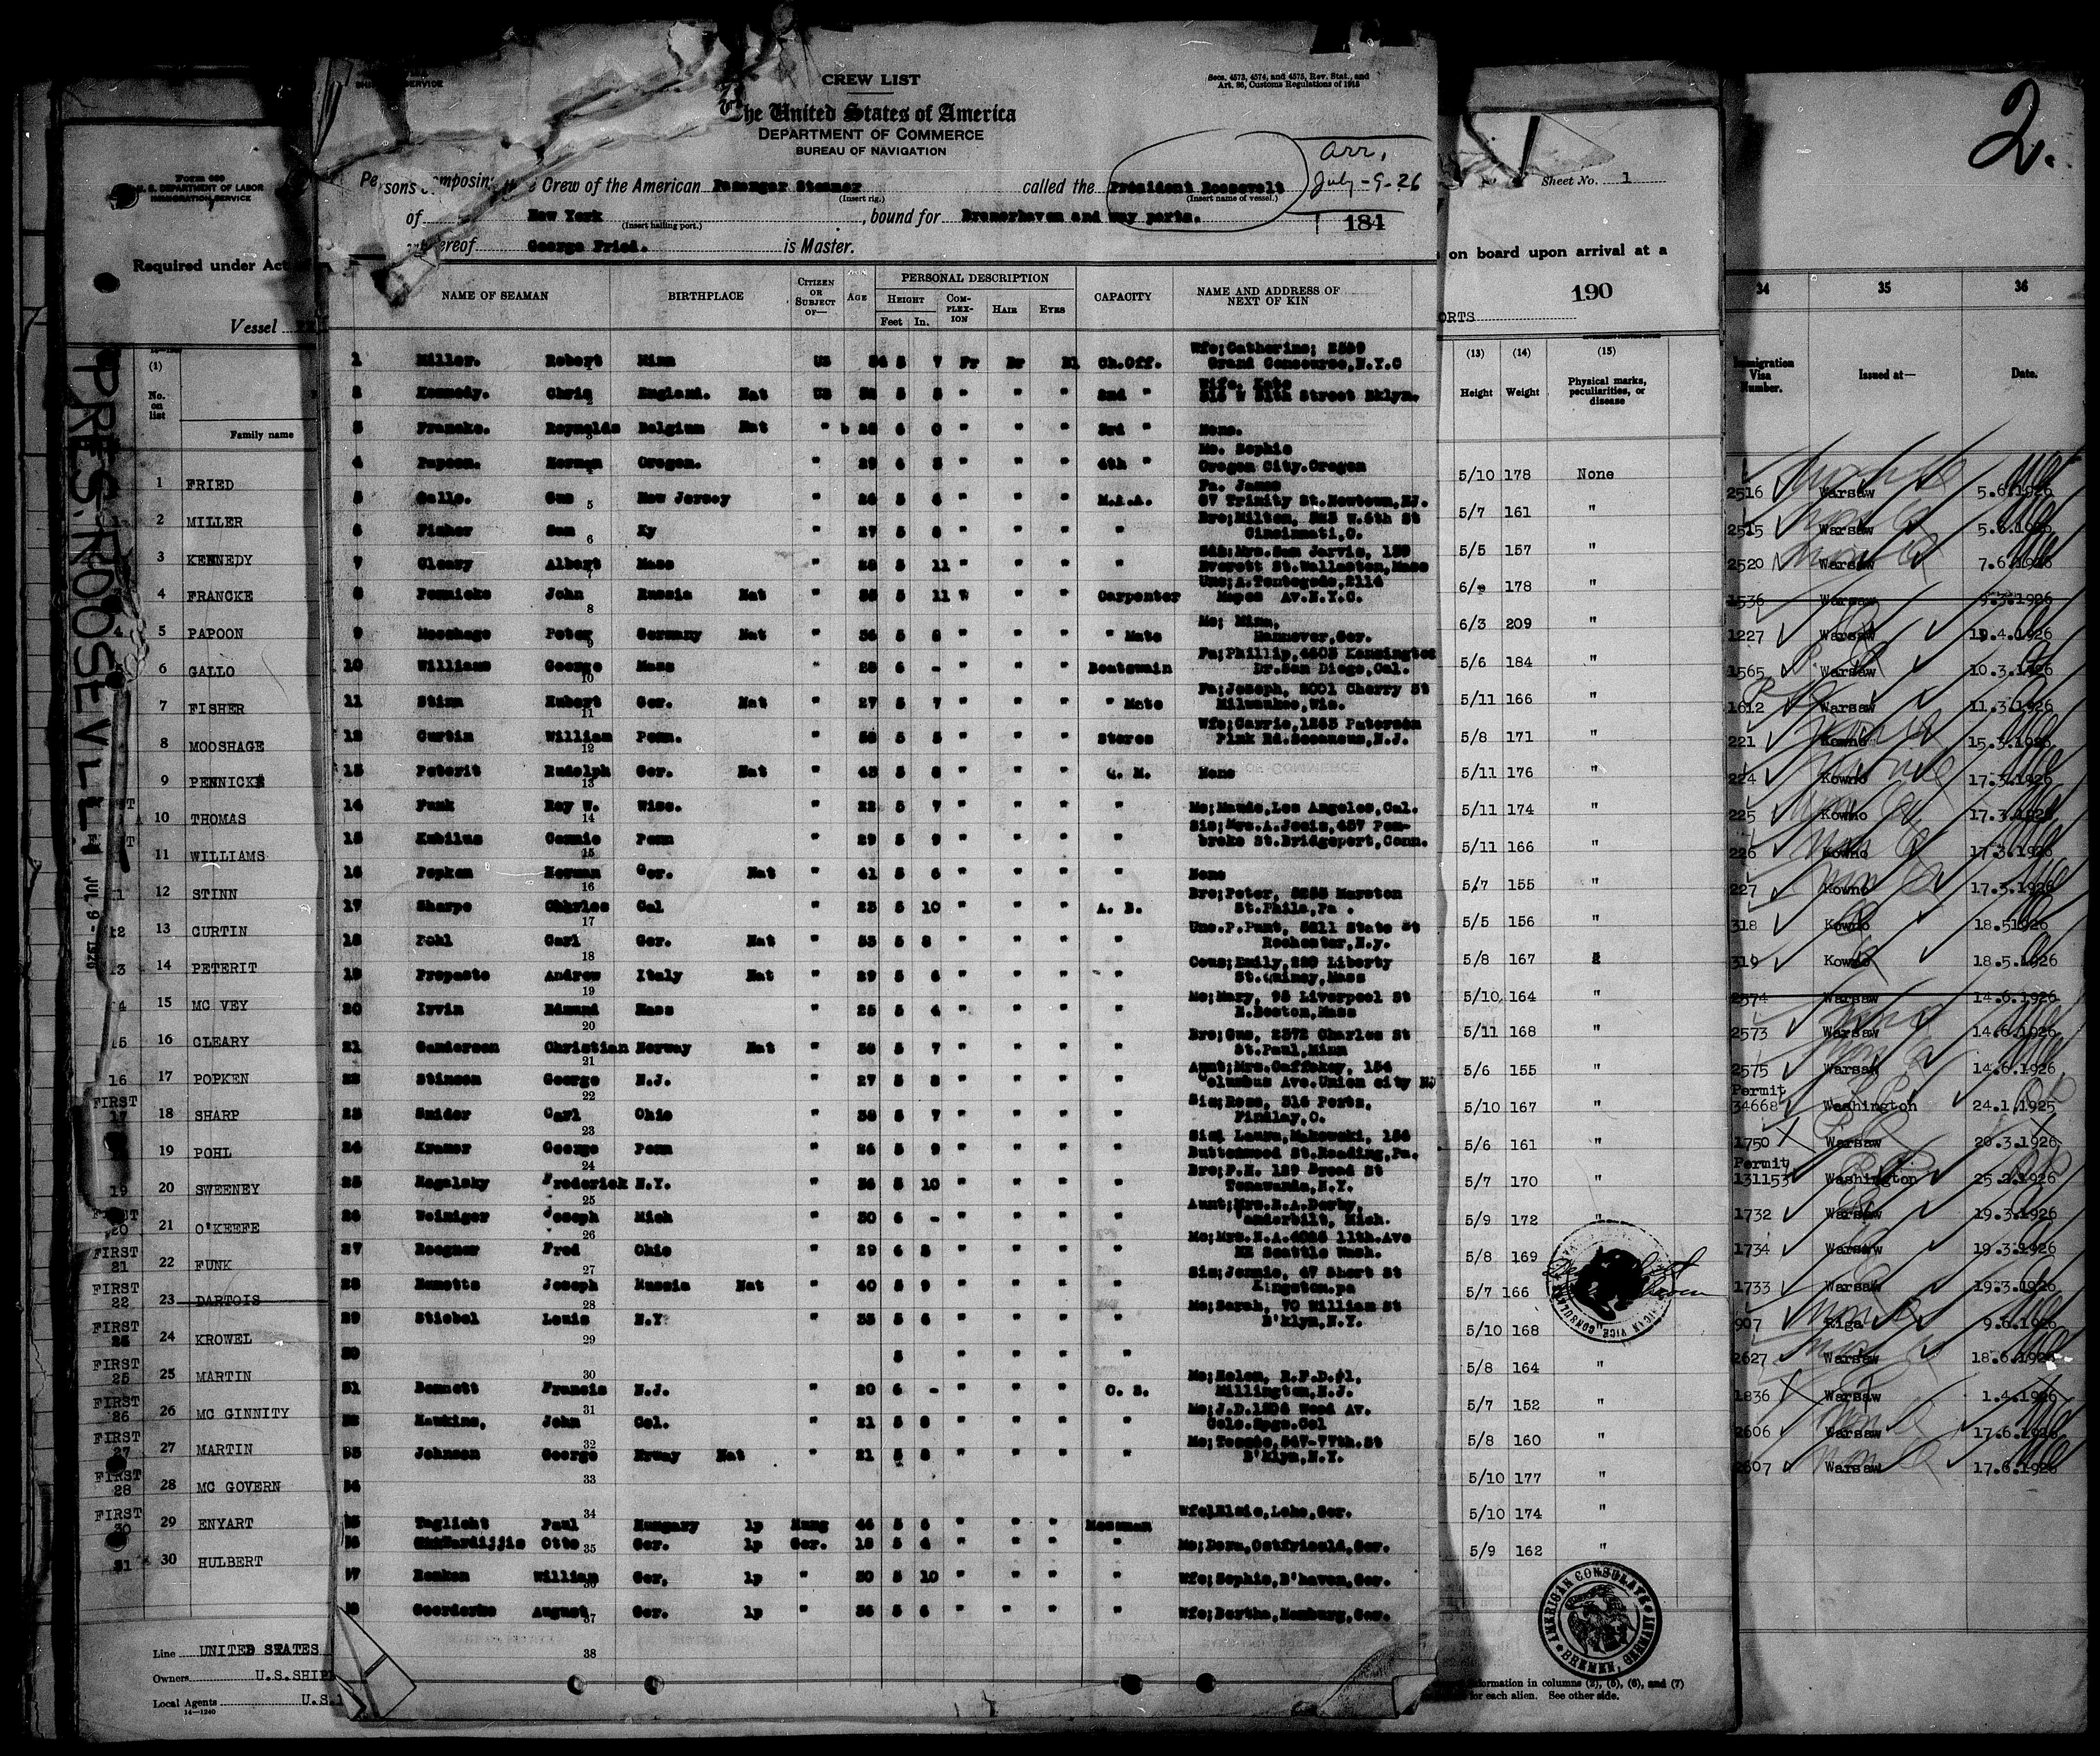 CREW LIST
Secs. 4573, 4574, and 4575, Rev. Stat., and
Art. 86, Customs Regulations of 1915
The United States of America
DEPARTMENT OF COMMERCE
BUREAU OF NAVIGATION
Crew of the American Passenger Steamer called the President Roosevelt
(Insert rig.) (Insert name of vessel.)
arr,
July-9-26
of New York, bound for Bremerhaven and way ports.
(Insert hailing port.)
184
George Fried. is Master.
NAME OF SEAMAN BIRTHPLACE CITIZEN OR SUBJECT OF— AGE PERSONAL DESCRIPTION CAPACITY NAME AND ADDRESS OF NEXT OF KIN
HEIGHT COM-PLEX-ION HAIR EYES
Feet In.
1 Miller. Robert Minn US 5 7 Fr Br Bl Ch.Off. Wfe;Catherine; Grand Concourse,N.Y.C
2 Kennedy. Chris England. Nat US 5 5 " " " 2nd " Wife, Kate Street Bklyn.
3 Francke. Reynolds Belgium Nat " 6 0 " " " 3rd " None.
4 Papoon. Herman Oregon. " 29 6 3 " " " 4th " Mo. Sophie Oregon City.Oregon
5 Gallo. Gus New Jersey " 5 6 " " " Fa. James 67 Trinity St.Newtown,NJ.
6 Fisher Sam Ky " 27 5 8 " " " " Bro;Milton, W.6th St Cincinnati,O.
7 Cleary Albert Mass " 5 11 " " " " Everett St.Wollaston,Mass
8 Pennicke John Russia Nat " 5 11 " " " Carpenter Av.N.Y.C.
9 Mooshage Peter Germany Nat " 5 " " " " Mate Mo; Minn, Hannover,Ger.
10 Williams George Mass " 6 - " " " Boatswain Fa;Phillip,4605 Kensington Dr.San Diego,Cal.
11 Stinn Hubert Ger. Nat " 27 5 7 " " " " Mate Fa;Joseph, 2001 Cherry St Milwaukee,Wis.
12 Curtin William Penn. " 5 5 " " " Stores Wfe;Carrie,1265 Paterson Plnk Rd.Secaucus,N.J.
13 Peterit Rudolph Ger. Nat " 43 5 8 " " " Q. M. None
14 Funk Roy W. Wisc. " 22 5 7 " " " " Mo;Maude,Los Angeles,Cal.
15 Kubilus Connie Penn " 29 5 9 " " " " Sis;Mrs.A.Josis,457 Pem-broke St.Bridgeport,Conn.
16 Popken Herman Ger. Nat " 41 5 6 " " " " None
17 Sharpe Charles Cal " 23 5 10 " " " A. B. Bro;Peter, Marston St.Phila,Pa .
18 Pohl Carl Ger. Nat " 53 5 8 " " " " Unc.P.Punt, State St Rochester,N.y.
19 Propasto Andrew Italy Nat " 29 5 6 " " " " Cous;Emily,220 Liberty St.Quincy,Mass
20 Irvin Edmund Mass " 25 5 4 " " " " Mo;Mary, 95 Liverpool St E.Boston,Mass
21 Gunderson Christian Norway Nat " 5 7 " " " " Bro;Gus, 2372 Charles St St.Paul,Minn
22 Stinson George N.J. " 27 5 8 " " " " Aunt;Mrs.Gaffskey, 154 Columbus Ave.Union city NJ
23 Snider Carl Ohio " 5 7 " " " " Sis;Rose, 316 Findlay,O.
24 Kramer George Penn " 26 5 9 " " " " Sis; Laura,Makowski, 154 Buttonwood St.Reading,Pa.
25 Rogalsky Frederick N.Y. " 5 10 " " " " Bro;F.H. 129 Broad St Tonawanda,N.Y.
26 Weiniger Joseph Mich " 30 6 - " " " " Aunt;Mrs.E.A.Derby, Vanderbilt, Mich.
27 Roegner Fred Ohio " 29 6 " " " " Mo;Mrs.H.A.4026 11th.Ave NE Seattle Wash.
28 Joseph Russia Nat " 40 5 9 " " " " Sis;Jennie, 47 Short St Kingston,pa
29 Stiebel Louis N.Y. " 33 5 6 " " " " Mo;Sarah, 70 William St B'klyn,N.Y.
30 5 " " " "
31 Bennett Francis N.J. " 20 6 - " " " O. S. Mo;Helen, R.F.D.#1, Millington,N.J.
32 Hawkins, John Col. " 21 5 8 " " " " Mo;J.D. Wood Av. Colo.Spgs.Col
33 Johnson George Nrway Nat " 21 5 8 " " " " 547-77th.St B'klyn,N.Y.
34
35 Taglicht Paul Hungary lp Hung 44 5 5 " " " Messman Wfe;Elsie,Lehe,Ger.
36 Otto Ger. lp Ger. 18 5 " " " " Mo;Dora,Ostfriesld,Ger.
37 Renken William Ger. lp " 30 5 10 " " " " Wfe;Sophie,B'haven,Ger.
38 Goerderke August Ger. lp " 36 5 6 " " " " Wfe;Bertha,Hamburg,Ger.
Form 680
U. S. DEPARTMENT OF LABOR
IMMIGRATION SERVICE
Required under Act
Vessel
PRES. ROOSEVELT
JUL 9 - 1926
(1)
No. on list
Family name
1 FRIED
2 MILLER
3 KENNEDY
4 FRANCKE
5 PAPOON
6 GALLO
7 FISHER
8 MOOSHAGE
9 PENNICKE
10 THOMAS
11 WILLIAMS
12 STINN
13 CURTIN
14 PETERIT
15 MC VEY
16 CLEARY
17 POPKEN
18 SHARP
19 POHL
20 SWEENEY
21 O'KEEFE
22 FUNK
23 DARTOIS
24 KROWEL
25 MARTIN
26 MC GINNITY
27 MARTIN
28 MC GOVERN
29 ENYART
30 HULBERT
Line UNITED STATES
Owners U.S.SHIP
Local Agents U.S.
14—1240
Sheet No. 1
on board upon arrival at a
190
ORTS
(13) (14) (15)
Height Weight Physical marks, peculiarities, or disease
5/10 178 None
5/7 161 "
5/5 157 "
6/- 178 "
6/3 209 "
5/6 184 "
5/11 166 "
5/8 171 "
5/11 176 "
5/11 174 "
5/11 166 "
5/7 155 "
5/5 156 "
5/8 167
5/10 164 "
5/11 168 "
5/6 155 "
5/10 167 "
5/6 161 "
5/7 170 "
5/9 172 "
5/8 169
5/7 166
5/10 168 "
5/8 164 "
5/7 152 "
5/8 160 "
5/10 177 "
5/10 174 "
5/9 162 "
AMERICAN CONSULATE BREMEN, GERMANY
information in columns (2), (5), (6), and (7)
for each alien. See other side.
2.
34 35 36
Immigration Visa Number. Issued at— Date.
2516 Warsaw 5.6.1926
2515 Warsaw 5.6.1926
2520 Warsaw 7.6.1926
1536 Warsaw 9.3.1926
1227 Warsaw 19.4.1926
1565 Warsaw 10.3.1926
1612 Warsaw 11.3.1926
221 Kowno 15.3.1926
224 Kowno 17.3.1926
225 Kowno 17.3.1926
226 Kowno 17.3.1926
227 Kowno 17.3.1926
318 Kowno 18.51926
319 Kowno 18.5.1926
2574 Warsaw 14.6.1926
2573 Warsaw 14.6.1926
2575 Warsaw 14.6.1926
Permit
34668 Washington 24.1.1925
1750 Warsaw 20.3.1926
Permit
131153 Washington 25.2.1926
1732 Warsaw 19.3.1926
1734 Warsaw 19.3.1926
1733 Warsaw 19.3.1926
907 Riga 9.6.1926
2627 Warsaw 18.6.1926
1836 Warsaw 1.4.1926
2606 Warsaw 17.6.1926
2607 Warsaw 17.6.1926